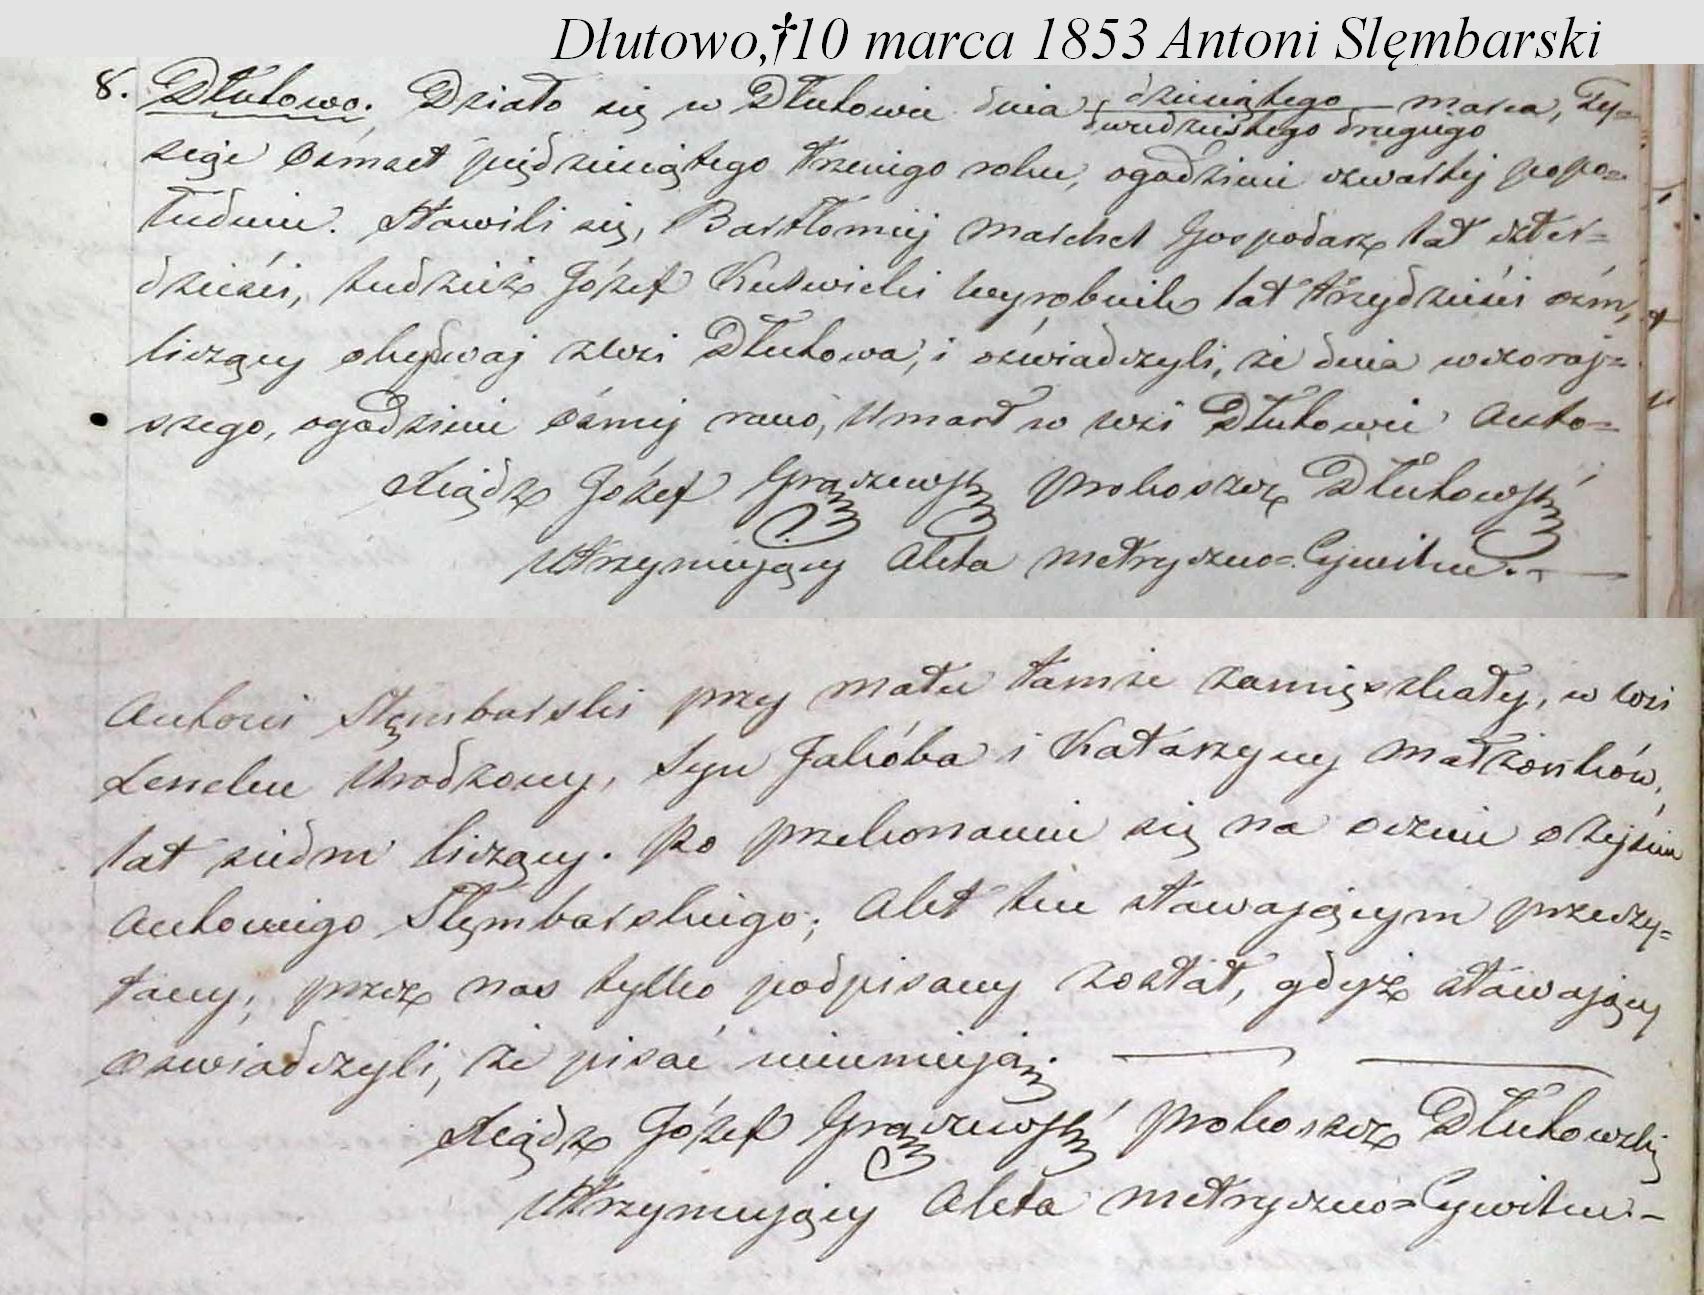 Dłutowo,†10 marca 1853 Antoni Slęmbarski
8. Dłutowo. Działo się w Dłutowie dnia dziesiątego
dwudziestego drugiego marca, Ty=
siąc Ośmset piędziesiątego trzeciego roku, ogodzinie czwartej popo=
łudniu. Stawili się, Bartłomiej Marchel Gospodarz lat czter=
dzieści, tudzież Józef Wyrobnik lat trzydzieści ośm,
liczący obydwaj zwsi Dłutowa, i oświadczyli, że dnia wczoraj=
szego, ogodzinie ósmej rano, Umarł w wsi Dłutowie Anto=
Xiądz Józef Grączewski Proboszcz Dłutowski
Utrzymujący Akta metryczno=Cywilne.
Antoni Slęmbarski przy matce tamże zamięszkały, w wsi
Lencku Urodzony, Syn Jakóba i Katarzyny Małżonków,
lat siedm liczący. Po przekonaniu się na ocznie o zejściu
Antoniego Slęmbarskiego; Akt ten stawającym przeczy=
tany, przez nas tylko podpisany został, gdyż stawający
oświadczyli, że pisać nieumieją.
Xiądz Józef Grączewski Proboszcz Dłutowski
Utrzymujący Akta metryczno=Cywilne.